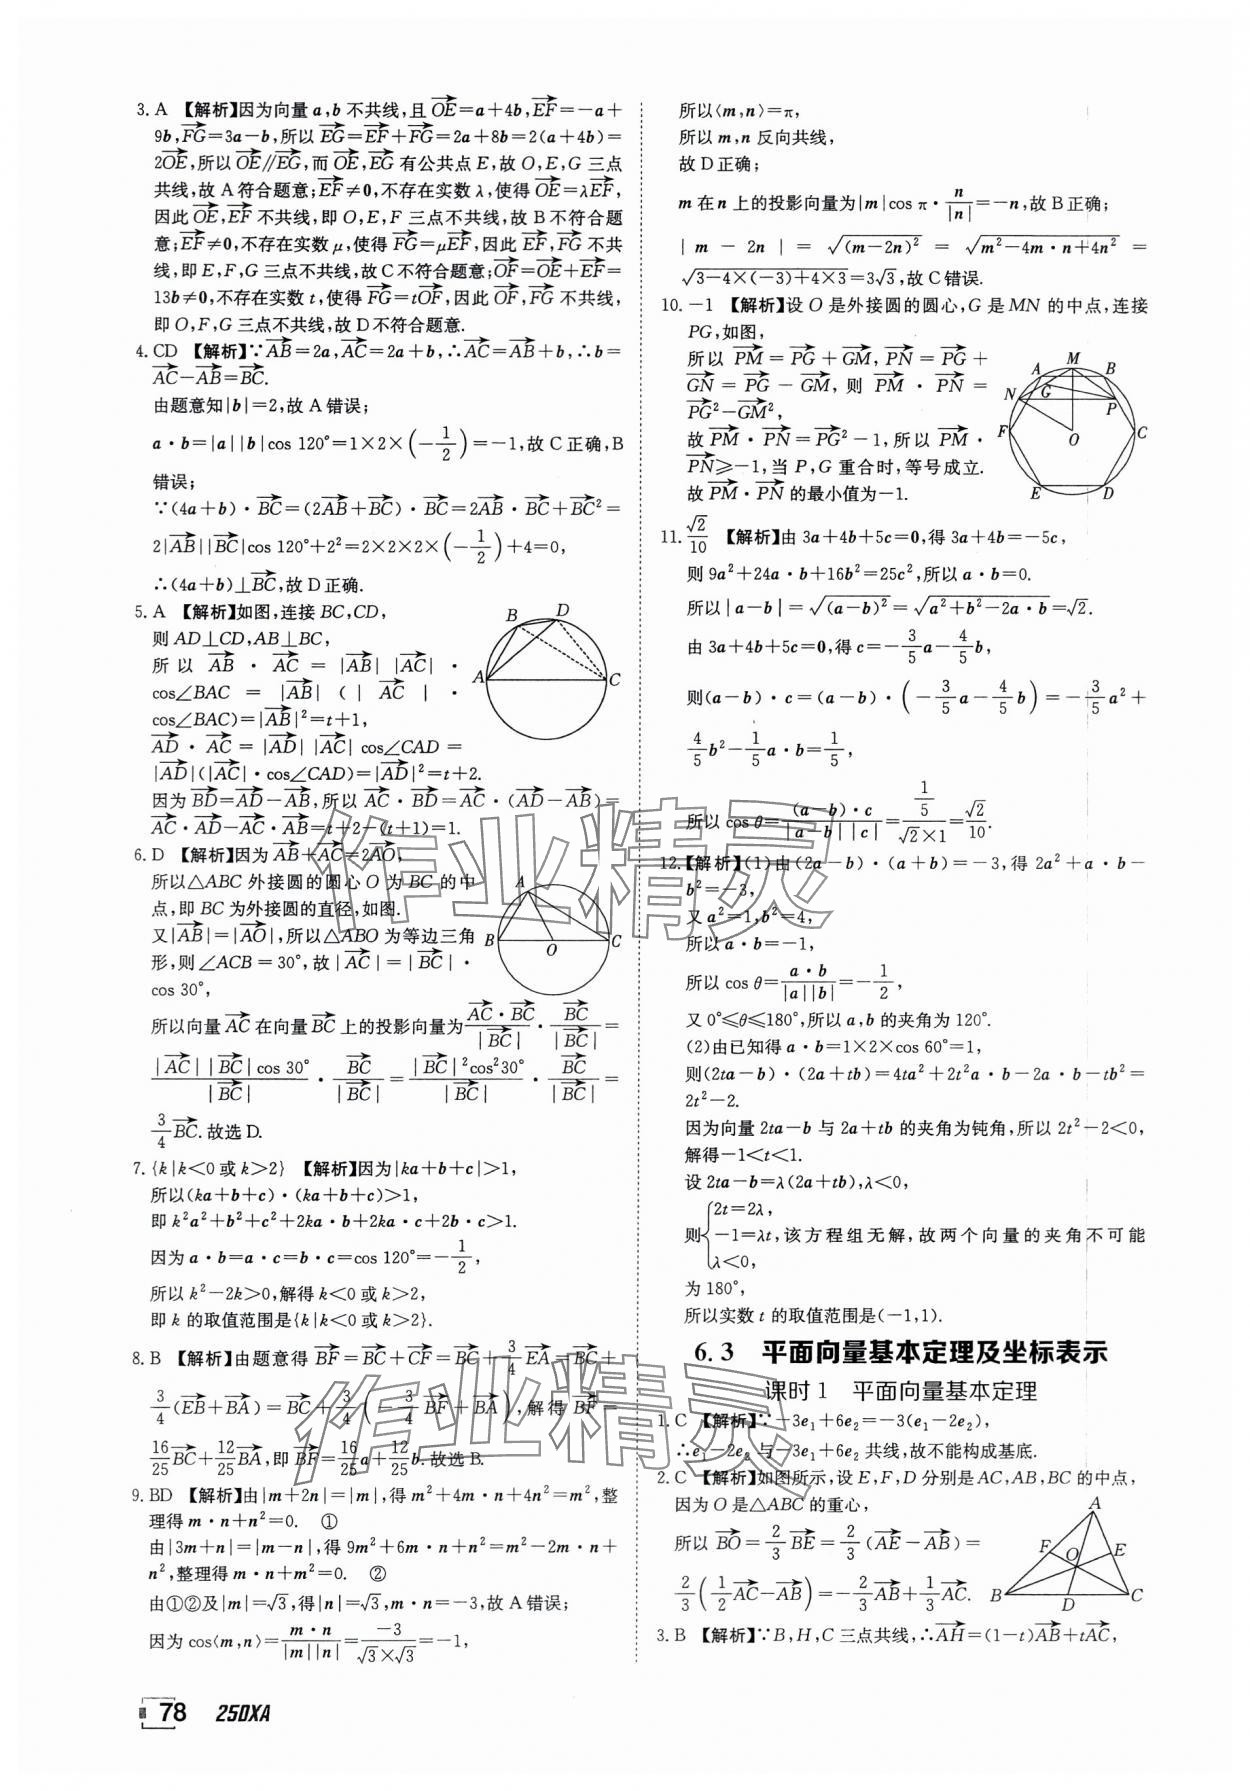 3. A 【解析】因为向量 a,b 不共线,且 \overrightarrow{OE}=a+4b,\overrightarrow{EF}=-a+
9b,\overrightarrow{FG}=3a-b,所以 \overrightarrow{EG}=\overrightarrow{EF}+\overrightarrow{FG}=2a+8b=2(a+4b)=
2\overrightarrow{OE},所以 \overrightarrow{OE}∥\overrightarrow{EG},而 \overrightarrow{OE},\overrightarrow{EG} 有公共点 E,故 O,E,G 三点
共线,故 A 符合题意;\overrightarrow{EF}≠0,不存在实数 λ,使得 \overrightarrow{OE}=λ\overrightarrow{EF},
因此 \overrightarrow{OE},\overrightarrow{EF} 不共线,即 O,E,F 三点不共线,故 B 不符合题
意;\overrightarrow{EF}≠0,不存在实数 μ,使得 \overrightarrow{FG}=μ\overrightarrow{EF},因此 \overrightarrow{EF},\overrightarrow{FG} 不共
线,即 E,F,G 三点不共线,故 C 不符合题意;\overrightarrow{OF}=\overrightarrow{OE}+\overrightarrow{EF}=
13b≠0,不存在实数 t,使得 \overrightarrow{FG}=t\overrightarrow{OF},因此 \overrightarrow{OF},\overrightarrow{FG} 不共线,
即 O,F,G 三点不共线,故 D 不符合题意.
4. CD 【解析】∵\overrightarrow{AB}=2a,\overrightarrow{AC}=2a+b,∴\overrightarrow{AC}=\overrightarrow{AB}+b,∴b=
\overrightarrow{AC}-\overrightarrow{AB}=\overrightarrow{BC}.
由题意知|b|=2,故 A 错误;
a·b=|a||b|cos 120°=1×2×(-\frac{1}{2})=-1,故 C 正确,B
错误;
∵(4a+b)·\overrightarrow{BC}=(2\overrightarrow{AB}+\overrightarrow{BC})·\overrightarrow{BC}=2\overrightarrow{AB}·\overrightarrow{BC}+\overrightarrow{BC}²=
2|\overrightarrow{AB}||\overrightarrow{BC}|cos 120°+2²=2×2×2×(-\frac{1}{2})+4=0,
∴(4a+b)⊥\overrightarrow{BC},故 D 正确.
5. A 【解析】如图,连接 BC,CD,
则 AD⊥CD,AB⊥BC,
所以 \overrightarrow{AB}·\overrightarrow{AC}=|\overrightarrow{AB}||\overrightarrow{AC}|·
cos∠BAC=|\overrightarrow{AB}|(|\overrightarrow{AC}|·
cos∠BAC)=|\overrightarrow{AB}|²=t+1,
\overrightarrow{AD}·\overrightarrow{AC}=|\overrightarrow{AD}||\overrightarrow{AC}|cos∠CAD=
|\overrightarrow{AD}|(|\overrightarrow{AC}|·cos∠CAD)=|\overrightarrow{AD}|²=t+2.
因为 \overrightarrow{BD}=\overrightarrow{AD}-\overrightarrow{AB},所以 \overrightarrow{AC}·\overrightarrow{BD}=\overrightarrow{AC}·(\overrightarrow{AD}-\overrightarrow{AB})=
\overrightarrow{AC}·\overrightarrow{AD}-\overrightarrow{AC}·\overrightarrow{AB}=t+2-(t+1)=1.
B D A C
6. D 【解析】因为 \overrightarrow{AB}+\overrightarrow{AC}=2\overrightarrow{AO},
所以△ABC 外接圆的圆心 O 为 BC 的中
点,即 BC 为外接圆的直径,如图.
又|\overrightarrow{AB}|=|\overrightarrow{AO}|,所以△ABO 为等边三角
形,则∠ACB=30°,故|\overrightarrow{AC}|=|\overrightarrow{BC}|·
cos 30°,
A B O C
所以向量 \overrightarrow{AC} 在向量 \overrightarrow{BC} 上的投影向量为 \frac{\overrightarrow{AC}·\overrightarrow{BC}}{|\overrightarrow{BC}|}·\frac{\overrightarrow{BC}}{|\overrightarrow{BC}|}=
\frac{|\overrightarrow{AC}||\overrightarrow{BC}|cos 30°}{|\overrightarrow{BC}|}·\frac{\overrightarrow{BC}}{|\overrightarrow{BC}|}=\frac{|\overrightarrow{BC}|²cos²30°}{|\overrightarrow{BC}|}·\frac{\overrightarrow{BC}}{|\overrightarrow{BC}|}=
\frac{3}{4}\overrightarrow{BC}.故选 D.
7. {k|k<0 或 k>2} 【解析】因为|ka+b+c|>1,
所以(ka+b+c)·(ka+b+c)>1,
即 k²a²+b²+c²+2ka·b+2ka·c+2b·c>1.
因为 a·b=a·c=b·c=cos 120°=-\frac{1}{2},
所以 k²-2k>0,解得 k<0 或 k>2,
即 k 的取值范围是{k|k<0 或 k>2}.
8. B 【解析】由题意得 \overrightarrow{BF}=\overrightarrow{BC}+\overrightarrow{CF}=\overrightarrow{BC}+\frac{3}{4}\overrightarrow{EA}=\overrightarrow{BC}+
\frac{3}{4}(\overrightarrow{EB}+\overrightarrow{BA})=\overrightarrow{BC}+\frac{3}{4}(-\frac{3}{4}\overrightarrow{BF}+\overrightarrow{BA}),解得 \overrightarrow{BF}=
\frac{16}{25}\overrightarrow{BC}+\frac{12}{25}\overrightarrow{BA},即 \overrightarrow{BF}=\frac{16}{25}a+\frac{12}{25}b.故选 B.
9. BD 【解析】由|m+2n|=|m|,得 m²+4m·n+4n²=m²,整
理得 m·n+n²=0. ①
由|3m+n|=|m-n|,得 9m²+6m·n+n²=m²-2m·n+
n²,整理得 m·n+m²=0. ②
由①②及|m|=√3,得|n|=√3,m·n=-3,故 A 错误;
因为 cos⟨m,n⟩=\frac{m·n}{|m||n|}=\frac{-3}{√3×√3}=-1,
所以⟨m,n⟩=π,
所以 m,n 反向共线,
故 D 正确;
m 在 n 上的投影向量为|m|cos π·\frac{n}{|n|}=-n,故 B 正确;
|m-2n|=\sqrt{(m-2n)²}=\sqrt{m²-4m·n+4n²}=
\sqrt{3-4×(-3)+4×3}=3√3,故 C 错误.
10. -1 【解析】设 O 是外接圆的圆心,G 是 MN 的中点,连接
PG,如图,
所以 \overrightarrow{PM}=\overrightarrow{PG}+\overrightarrow{GM},\overrightarrow{PN}=\overrightarrow{PG}+
\overrightarrow{GN}=\overrightarrow{PG}-\overrightarrow{GM},则 \overrightarrow{PM}·\overrightarrow{PN}=
\overrightarrow{PG}²-\overrightarrow{GM}²,
故 \overrightarrow{PM}·\overrightarrow{PN}=\overrightarrow{PG}²-1,所以 \overrightarrow{PM}·
\overrightarrow{PN}≥-1,当 P,G 重合时,等号成立.
故 \overrightarrow{PM}·\overrightarrow{PN} 的最小值为-1.
M A B N G P F O C E D
11. \frac{√2}{10} 【解析】由 3a+4b+5c=0,得 3a+4b=-5c,
则 9a²+24a·b+16b²=25c²,所以 a·b=0.
所以|a-b|=\sqrt{(a-b)²}=\sqrt{a²+b²-2a·b}=√2.
由 3a+4b+5c=0,得 c=-\frac{3}{5}a-\frac{4}{5}b,
则(a-b)·c=(a-b)·(-\frac{3}{5}a-\frac{4}{5}b)=-\frac{3}{5}a²+
\frac{4}{5}b²-\frac{1}{5}a·b=\frac{1}{5},
所以 cos θ=\frac{(a-b)·c}{|a-b||c|}=\frac{\frac{1}{5}}{√2×1}=\frac{√2}{10}.
12.【解析】(1)由(2a-b)·(a+b)=-3,得 2a²+a·b-
b²=-3,
又 a²=1,b²=4,
所以 a·b=-1,
所以 cos θ=\frac{a·b}{|a||b|}=-\frac{1}{2},
又 0°≤θ≤180°,所以 a,b 的夹角为 120°.
(2)由已知得 a·b=1×2×cos 60°=1,
则(2ta-b)·(2a+tb)=4ta²+2t²a·b-2a·b-tb²=
2t²-2.
因为向量 2ta-b 与 2a+tb 的夹角为钝角,所以 2t²-2<0,
解得-1<t<1.
设 2ta-b=λ(2a+tb),λ<0,
则{2t=2λ, -1=λt, λ<0, 该方程组无解,故两个向量的夹角不可能
为 180°,
所以实数 t 的取值范围是(-1,1).
6.3 平面向量基本定理及坐标表示
课时 1 平面向量基本定理
1. C 【解析】∵-3e₁+6e₂=-3(e₁-2e₂),
∴e₁-2e₂ 与-3e₁+6e₂ 共线,故不能构成基底.
2. C 【解析】如图所示,设 E,F,D 分别是 AC,AB,BC 的中点,
因为 O 是△ABC 的重心,
所以 \overrightarrow{BO}=\frac{2}{3}\overrightarrow{BE}=\frac{2}{3}(\overrightarrow{AE}-\overrightarrow{AB})=
\frac{2}{3}(\frac{1}{2}\overrightarrow{AC}-\overrightarrow{AB})=-\frac{2}{3}\overrightarrow{AB}+\frac{1}{3}\overrightarrow{AC}.
A F O E B D C
3. B 【解析】∵B,H,C 三点共线,∴\overrightarrow{AH}=(1-t)\overrightarrow{AB}+t\overrightarrow{AC},
作业精灵
作业精灵
78 25DXA